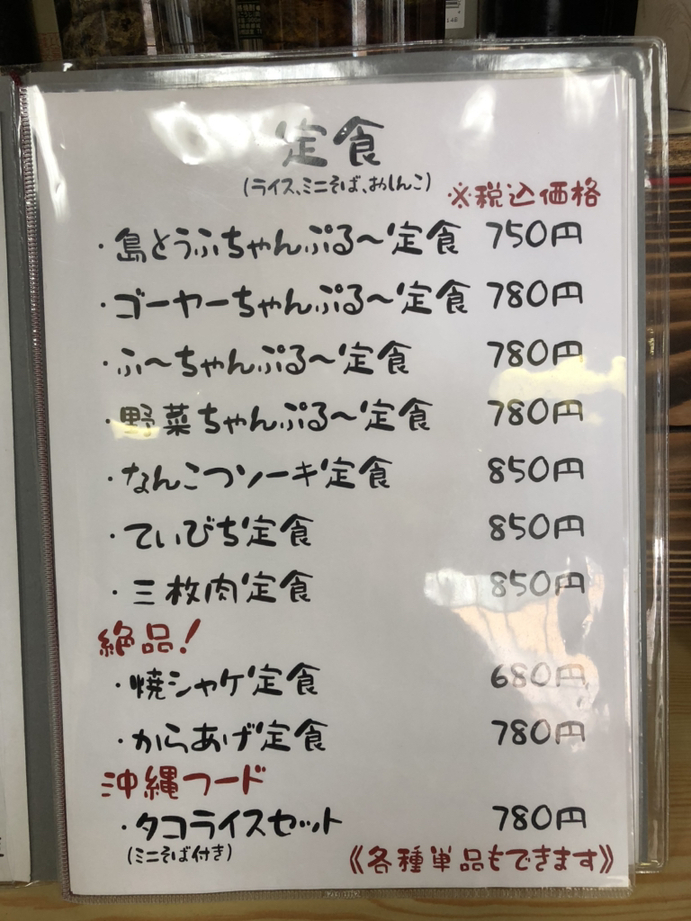 定食
(ライス、ミニそば、おしんこ)
※税込価格
・島とうふちゃんぷる〜定食 750円
・ゴーヤーちゃんぷる〜定食 780円
・ふ〜ちゃんぷる〜定食 780円
・野菜ちゃんぷる〜定食 780円
・なんこつソーキ定食 850円
・てぃびち定食 850円
・三枚肉定食 850円
絶品!
・焼シャケ定食 680円
・からあげ定食 780円
沖縄フード
・タコライスセット 780円
(ミニそば付き)
《各種単品もできます》